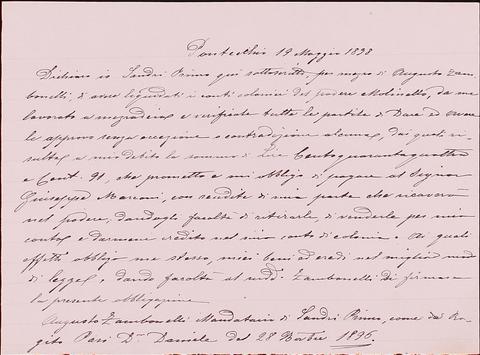 Pontecchio 19 Maggio 1898
Dichiaro io Sandri Primo qui sottoscritto per mezzo di Augusto Zam-
bonelli, di aver liquidati i conti colonici del podere Molinello, da me
lavorato a mezzadria e verificate tutte le partite di Dare ed Avere
le approvo senza eccezione o contradizione alcuna, dai quali ri-
sulta a mio debito la somma di Lire Centoquarantaquattro
e Cent. 91, che prometto e mi obbligo di pagare al Signor
Giuseppe Marconi, con rendite di mia parte che ricaverò
nel podere, dandogli facoltà di ritirarle, di venderle per mio
conto e darmene credito nel mio conto di colonia. Ai quali
effetti obbligo me stesso, miei beni ed eredi nel miglior modo
di legge, dando facoltà al sudd. Zambonelli di firmare
la presente obbligazione
Augusto Zambonelli Mandatario di Sandri Primo, come da Ro-
gito Pasi Dr. Daniele del 28 1896